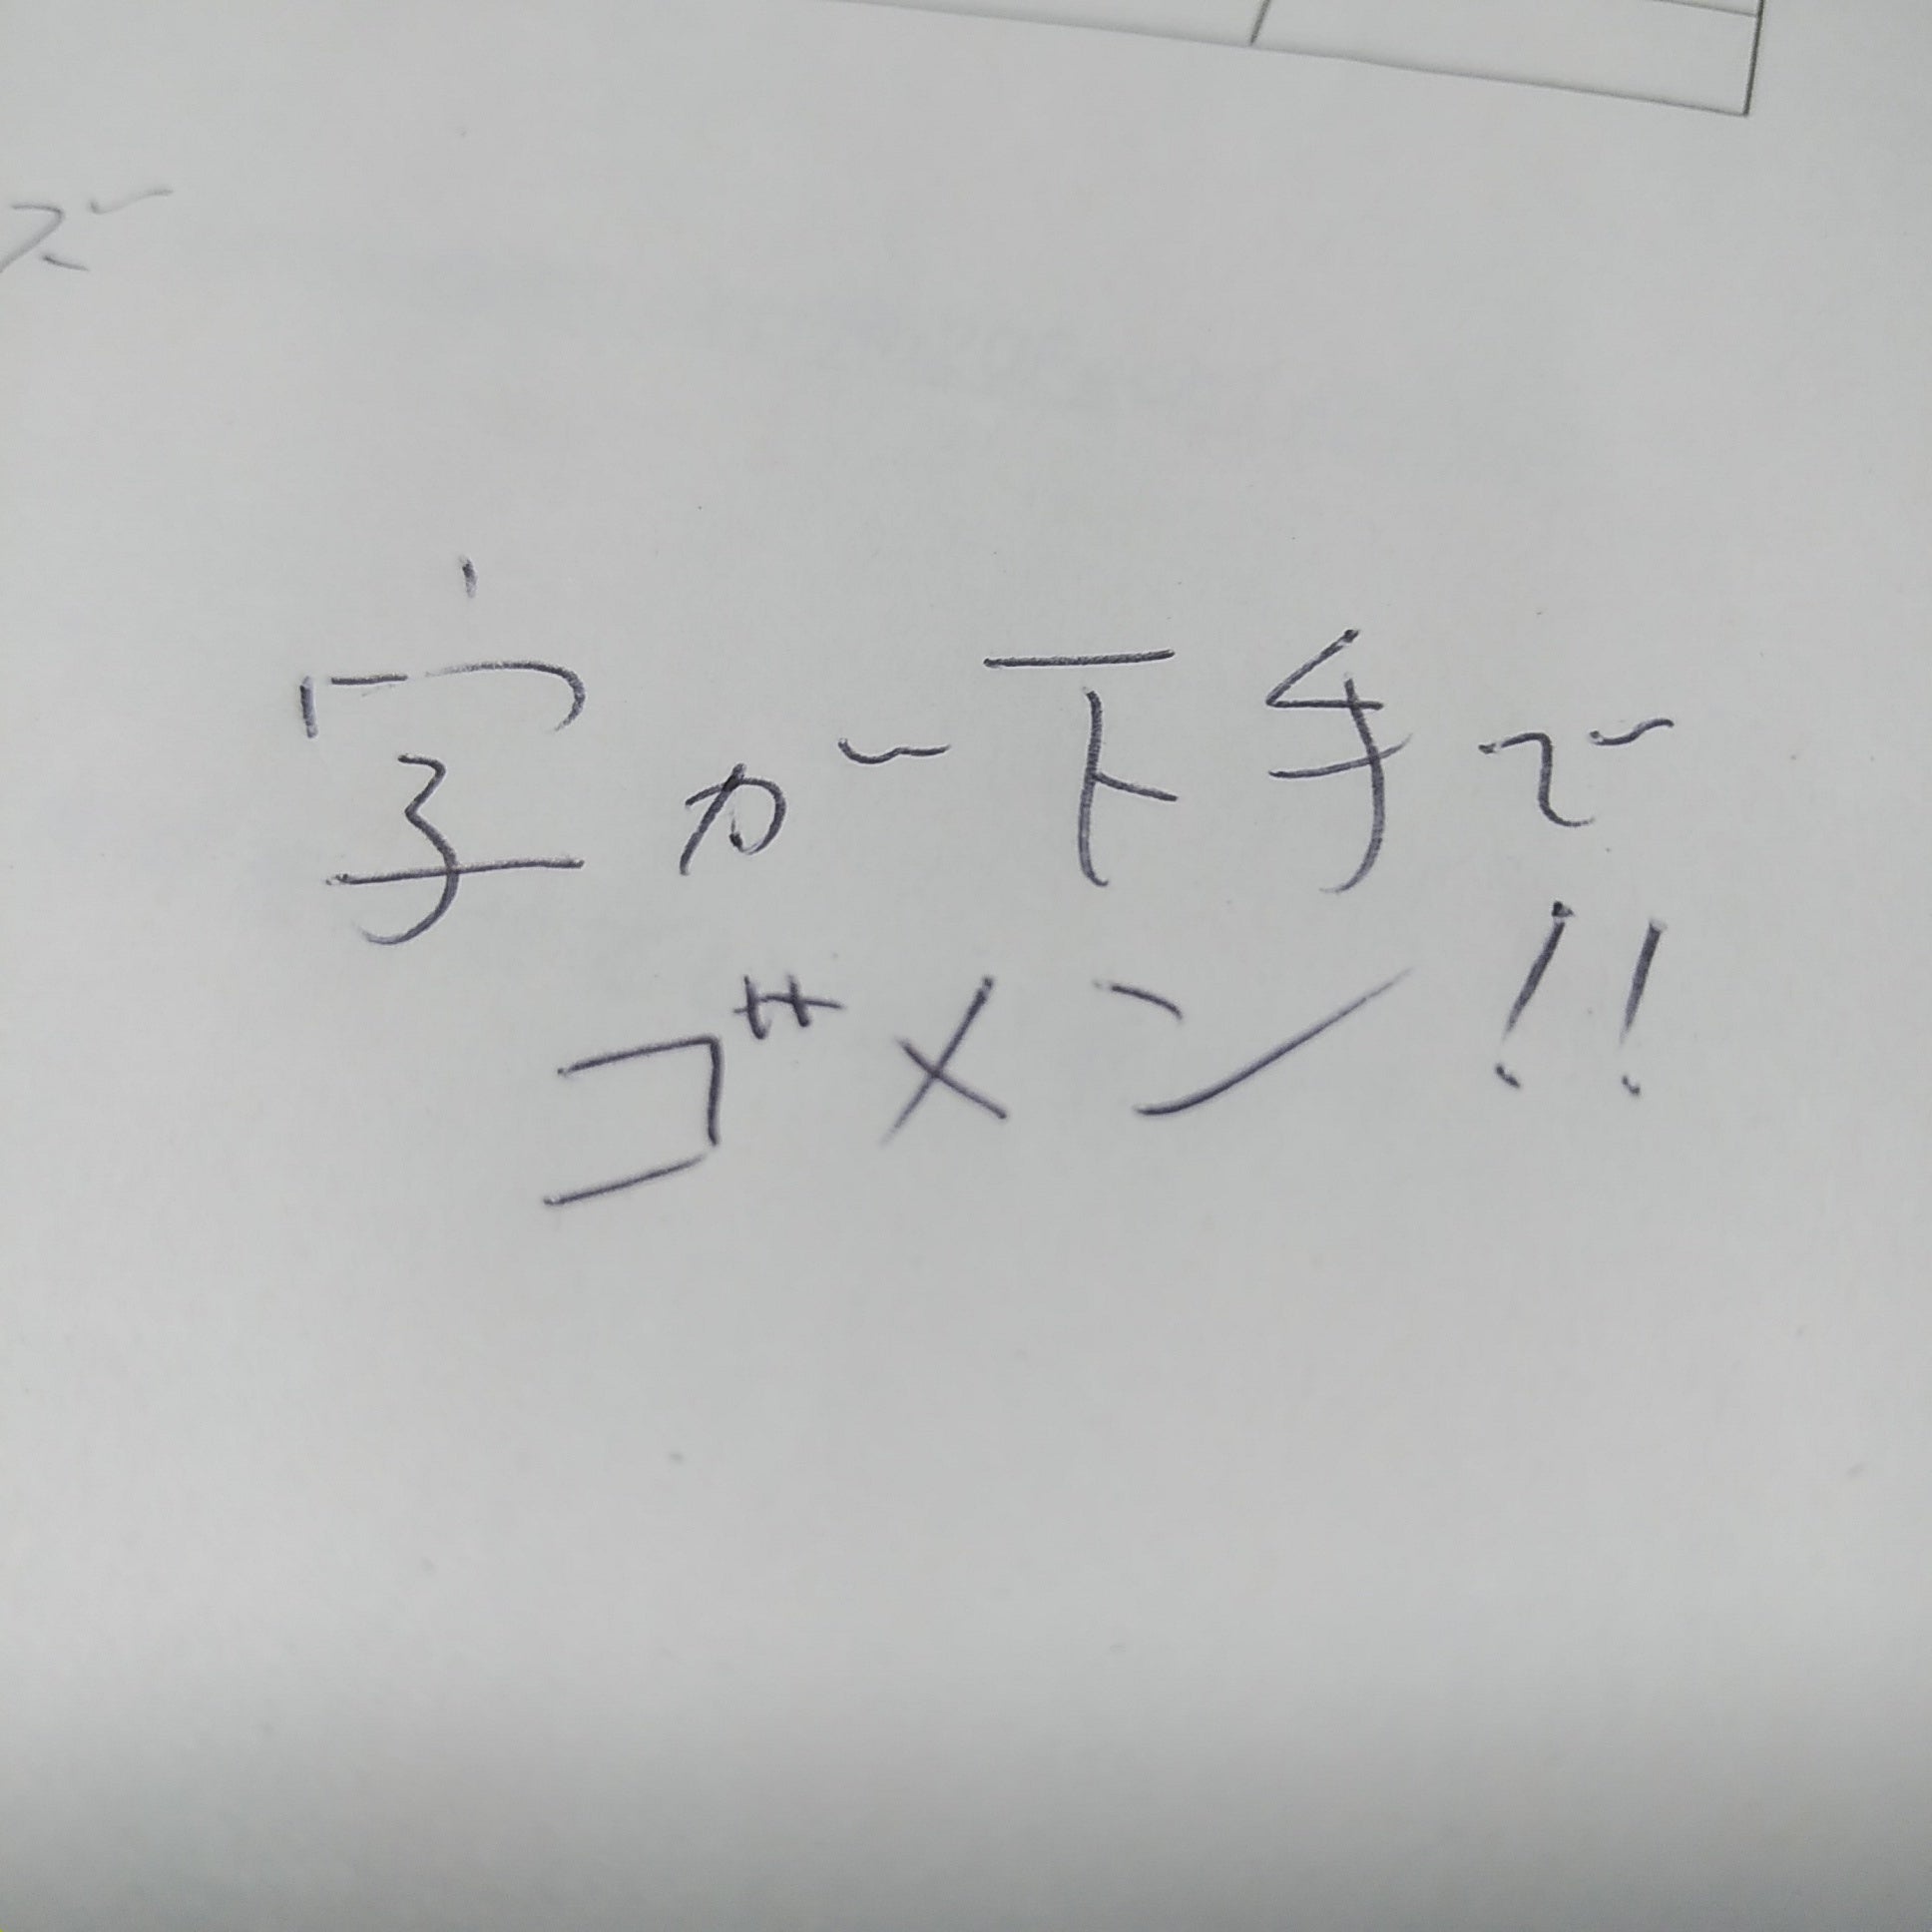 字が下手で
ゴメン!!